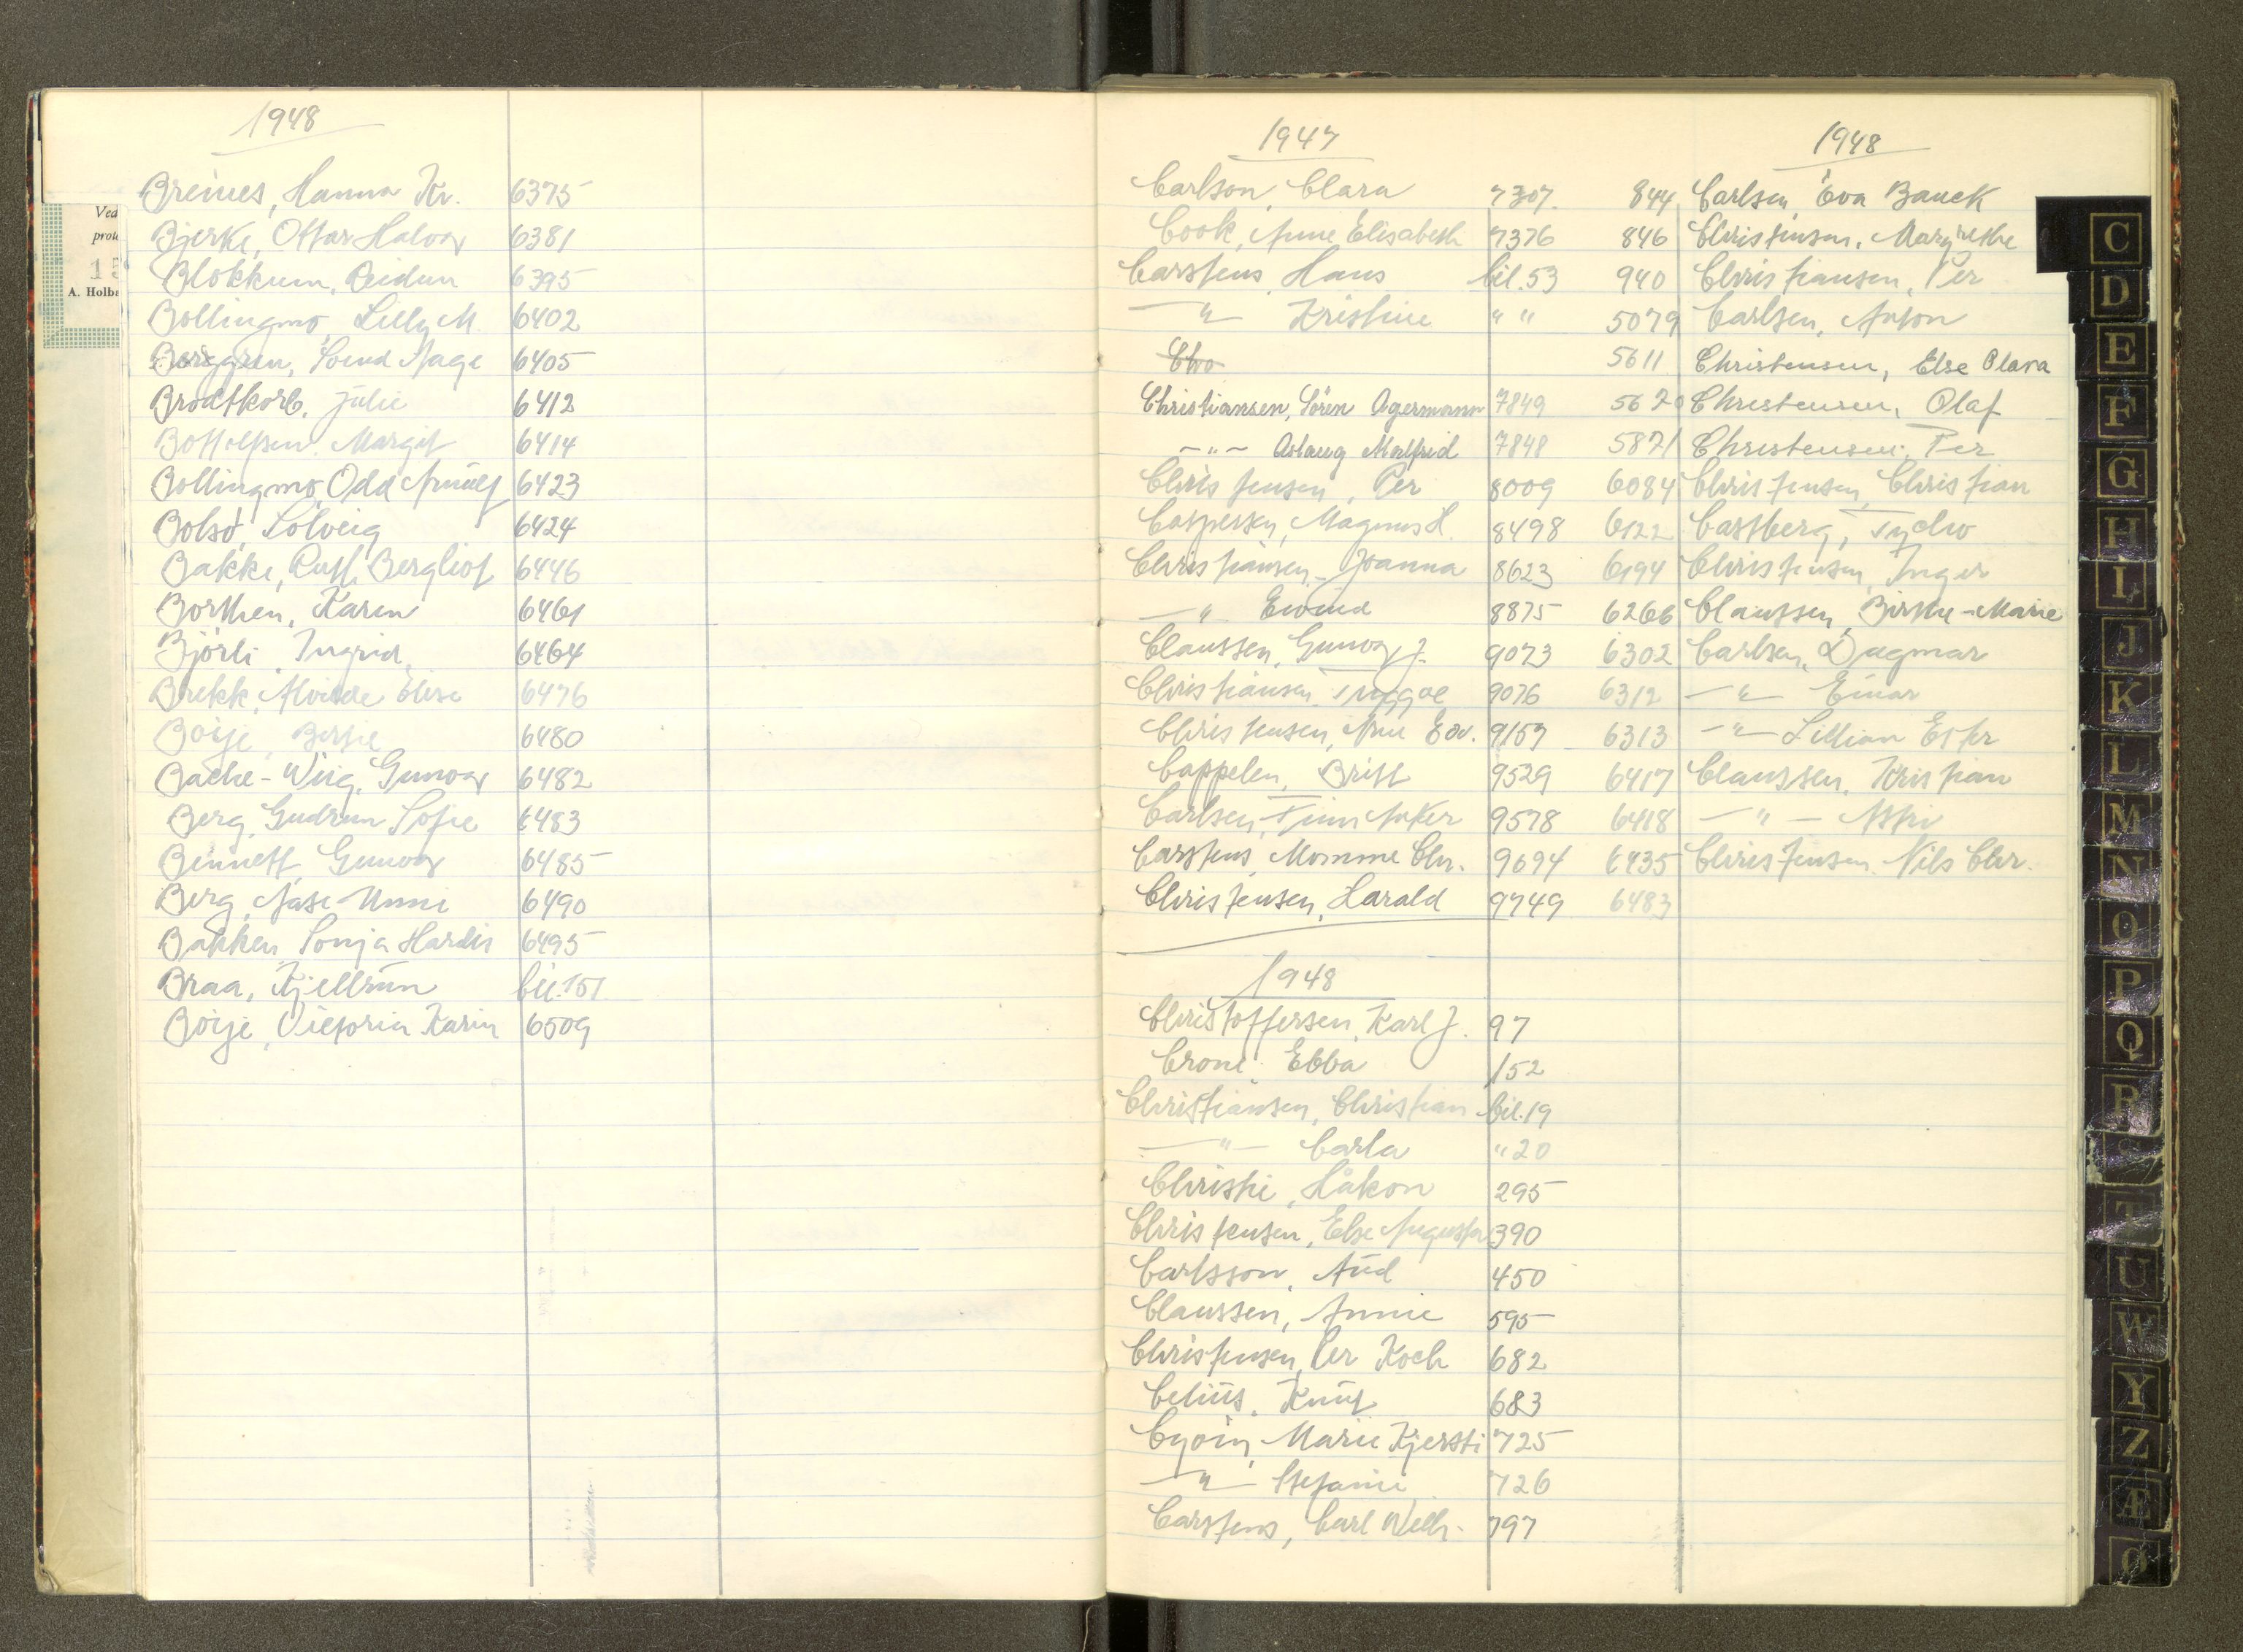 1948
Breines, Hanna Kr. 6375
Bjerke, Ottar Halvor 6381
Blokkum, Reidun 6395
Bollingmo, Lilly M. 6402
Berggren, Svend Aage 6405
Brodtkorb, Julie 6412
Bottolfsen, Margit 6414
Bollingmo, Odd Arnulf 6423
Bolsø, Solveig 6424
Bakke, Ruth Bergliot 6446
Borthen, Karen 6461
Björli, Ingrid 6464
Brekk, Alvilde Elise 6476
Böije, Bertie 6480
Bache-Wiig, Gunvor 6482
Berg, Gudrun Sofie 6483
Bennett, Gunvor 6485
Berg, Aase Unni 6490
Bakken, Sonja Hardis 6495
Braa, Kjellrun bil. 151
Böije, Victoria Karin 6509
Ved
prot
15
A. Holba
1947
Carlson, Clara 7307.
Cook, Anne Elisabeth 7376
Carstens, Hans bil. 53
— " — Kristine " "
Chr
Christiansen, Sören Agermann 7849
— " — Aslaug Malfrid 7848
Christensen, Per 8009
Caspersen, Magnus H. 8498
Christiansen, Joanna 8623
— " Eivind 8875
Claussen, Gunvor J. 9073
Christiansen, Tryggve 9076
Christensen, Arne Edv. 9157
Cappelen, Britt 9529
Carlsen, Finn Anker 9578
Carstens, Momme Chr. 9694
Christensen, Harald 9749
1948
Christoffersen, Karl J. 97
Crone, Ebba 152
Christiansen, Christian bil. 19
— " — Carla " 20
Christie, Håkon 295
Christensen, Else Augusta 390
Carlsson, Aud 450
Claussen, Annie 595
Christensen, Per Koch 682
Celius, Knut 683
Marie Kjersti 725
— " — Stefanie 726
Carstens, Carl Wilh. 797
1948
844 Carlsen, Eva Bauck
846 Christensen, Margrethe
940 Christiansen, Per
5079 Carlsen, Anton
5611 Christensen, Else Clara
5620 Christensen, Olaf
5871 Christensen, Per
6084 Christensen, Christian
6122 Castberg, Tycho
6194 Christensen, Inger
6266 Claussen, Birthe-Marie
6302 Carlsen, Dagmar
6312 — " — Einar
6313 — " — Lillian Ester
6417 Claussen, Kristian
6418 — " — Astri
6435 Christensen, Nils Chr.
6483
C
D
E
F
G
H
I
J
K
L
M
N
O
P
Q
R
S
T
U
W
Y
Z
Æ
Ø